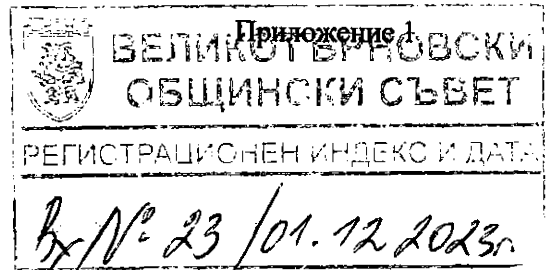 Приложение 1
ВЕЛИКОТЪРНОВСКИ
ОБЩИНСКИ СЪВЕТ
РЕГИСТРАЦИОНЕН ИНДЕКС И ДАТА
Вх № 23 / 01. 12 2023г.